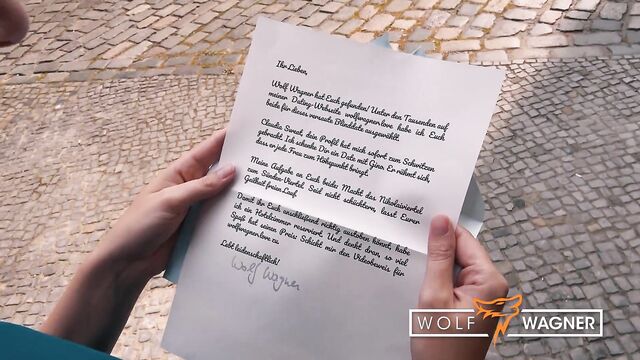 Ihr Lieben,
Wolf Wagner hat Euch gefunden! Unter den Tausenden auf
meiner Dating-Webseite wolfwagner.love habe ich Euch
beide für dieses versaute Blinddate ausgewählt.
Claudia Swea, dein Profil hat mich sofort zum Schwitzen
gebracht. Ich schenke Dir ein Date mit Gino. Er rühmt sich,
dass er jede Frau zum Höhepunkt bringt.
Meine Aufgabe an Euch beide: Macht das Nikolaiviertel
zum Sünden-Viertel. Seid nicht schüchtern, lasst Eurer
Geilheit freien Lauf.
Damit ihr Euch anschließend richtig austoben könnt, habe
ich ein Hotelzimmer reserviert. Und denkt dran, so viel
Spaß hat seinen Preis: Schickt mir den Videobeweis für
wolfwagner.love zu.
Lebt leidenschaftlich!
Wolf Wagner
WOLF WAGNER